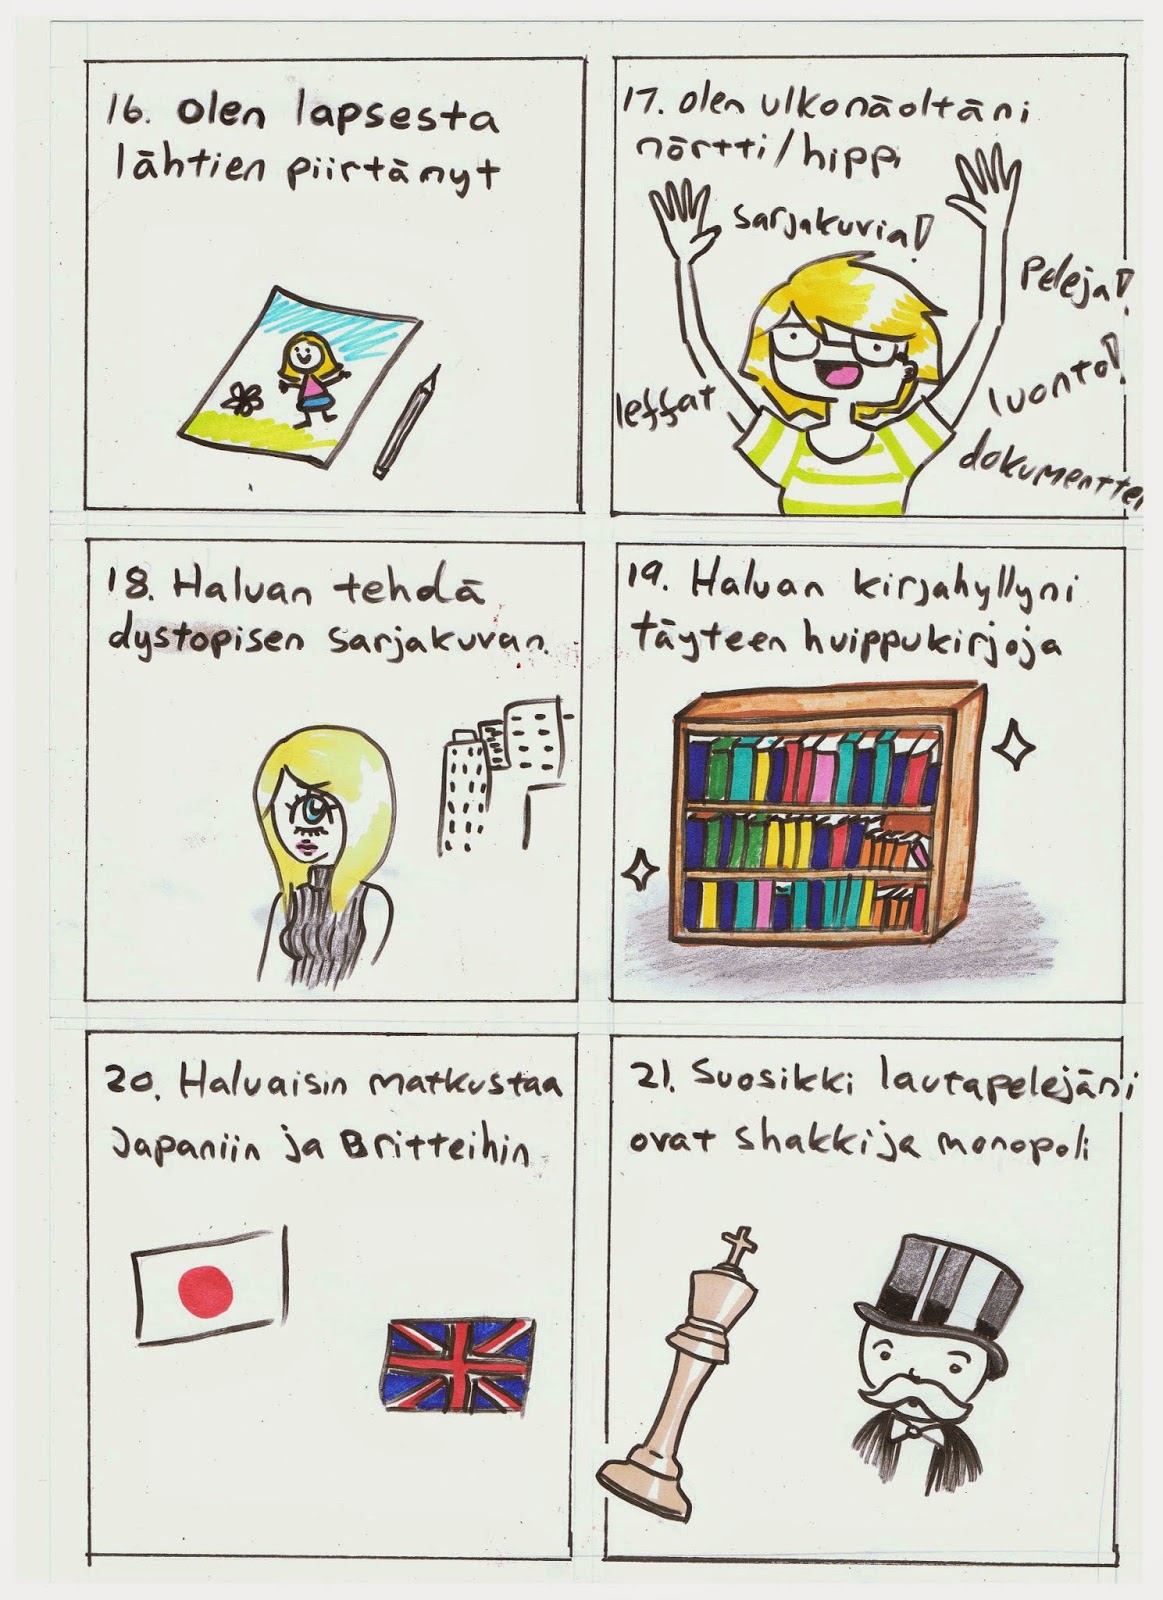 16. Olen lapsesta
lähtien piirtänyt
17. Olen ulkonäöltäni
nörtti/hippi
sarjakuvia!
Pelejä!
leffat
luonto!
dokumentteja
18. Haluan tehdä
dystopisen sarjakuvan.
19. Haluan kirjahyllyni
täyteen huippukirjoja
20. Haluaisin matkustaa
Japaniin ja Britteihin
21. Suosikki lautapelejäni
ovat shakki ja monopoli